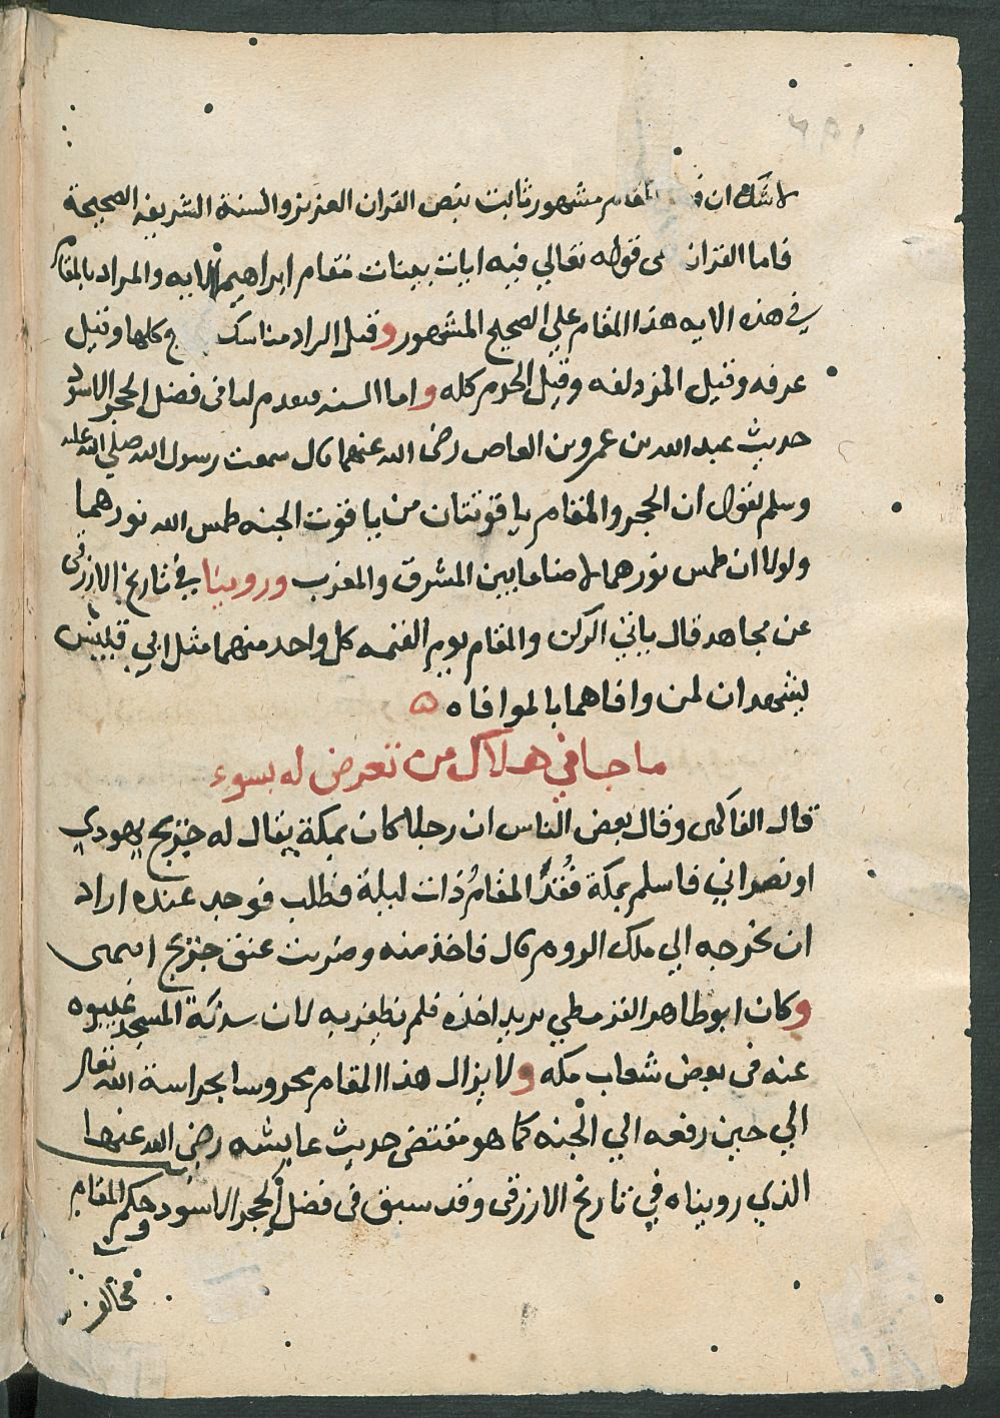 لا شك ان المقام مشهور ثابت بنص القران العزيز والسنة الشريفة الصحيحة
فاما القران قوله تعالي فيه ايات بينات مقام ابراهيم الايه والمراد بالمقام
في هذه الايه هذا المقام علي الصحيح المشهور وقيل المراد مناسك كلها وقيل
عرفه وقيل المزدلفه وقيل الحرم كله واما السنه فتقدم لنا في فضل الحجر الاسود
حديث عبد الله بن عمرو بن العاص رضى الله عنهما قال سمعت رسول الله صلي الله عليه
وسلم يقول ان الحجر والمقام ياقوتتان من ياقوت الجنه طمس الله نورهما
ولولا ان طمس نورهما لاضاءا ما بين المشرق والمغرب وروينا في تاريخ الازرقى
عن مجاهد قال ياتي الركن والمقام يوم القيمه كل واحد منهما مثل ابي قبيس
يشهدان لمن وافاهما بالموافاه ۵
ما جا في هلاك من تعرض له بسوء
قال الفاكهى وقال بعض الناس ان رجلا كان بمكة يقال له جريج يهودي
او نصراني فاسلم بمكة فُقدَ المقامُ ذات ليلة فطلب فوجد عنده اراد
ان يخرجه الي ملك الروم قال فاخذ منه وضربت عنق جريج انتهى
وكان ابو طاهر القرمطي يريد اخذه فلم يظفر به لان سدنة المسجد غيبوه
عنه فى بعض شعاب مكه ولا يزال هذا المقام محروسا بحراسة الله تعالى
الي حين رفعه الي الجنه كما هو مقتضى حديث عايشه رضي الله عنها
الذي رويناه في تاريخ الازرقى وقد سبق فى فضل الحجر الاسود حكم المقام